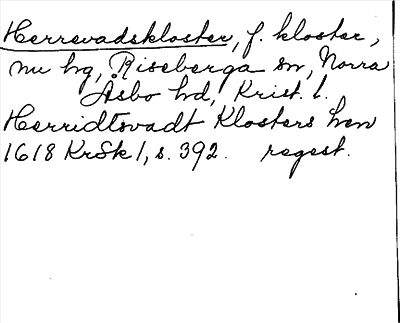 Herrevadskloster, f. kloster,
nu hg, Riseberga sn, Norra
Åsbo hd, Krist. l.
Herridtsvadt Klosters hen
1618 KrSk 1, s. 392. regest.